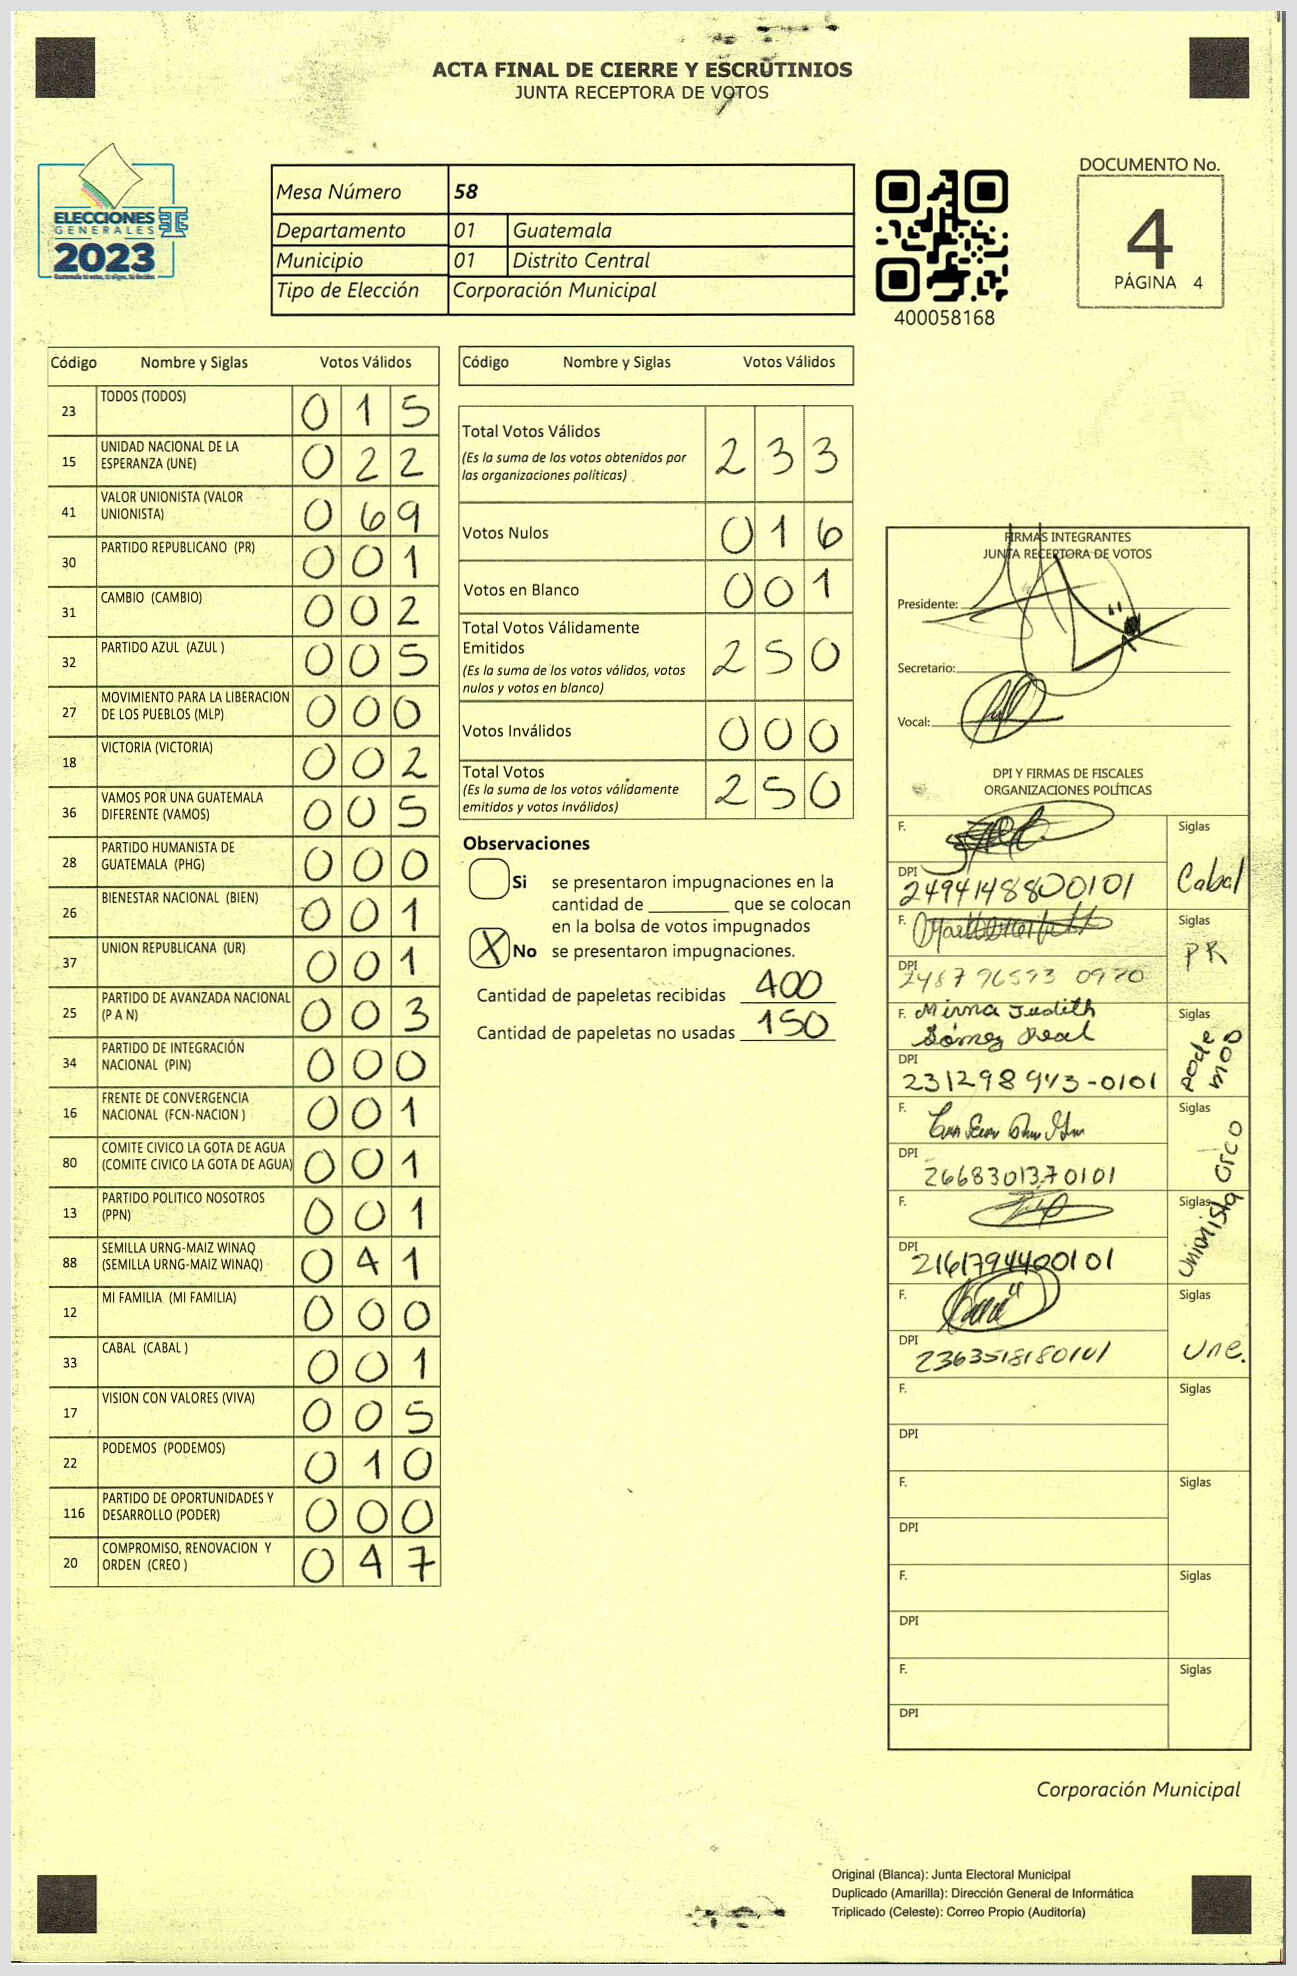 ACTA FINAL DE CIERRE Y ESCRUTINIOS
JUNTA RECEPTORA DE VOTOS
ELECCIONES
GENERALES
2023
Mesa Número 58
Departamento 01 Guatemala
Municipio 01 Distrito Central
Tipo de Elección Corporación Municipal
400058168
DOCUMENTO No.
4
PÁGINA 4
Código Nombre y Siglas Votos Válidos
23 TODOS (TODOS) 0 1 5
15 UNIDAD NACIONAL DE LA
ESPERANZA (UNE) 0 2 2
41 VALOR UNIONISTA (VALOR
UNIONISTA) 0 6 9
30 PARTIDO REPUBLICANO (PR) 0 0 1
31 CAMBIO (CAMBIO) 0 0 2
32 PARTIDO AZUL (AZUL ) 0 0 5
27 MOVIMIENTO PARA LA LIBERACION
DE LOS PUEBLOS (MLP) 0 0 0
18 VICTORIA (VICTORIA) 0 0 2
36 VAMOS POR UNA GUATEMALA
DIFERENTE (VAMOS) 0 0 5
28 PARTIDO HUMANISTA DE
GUATEMALA (PHG) 0 0 0
26 BIENESTAR NACIONAL (BIEN) 0 0 1
37 UNION REPUBLICANA (UR) 0 0 1
25 PARTIDO DE AVANZADA NACIONAL
(P A N) 0 0 3
34 PARTIDO DE INTEGRACIÓN
NACIONAL (PIN) 0 0 0
16 FRENTE DE CONVERGENCIA
NACIONAL (FCN-NACION ) 0 0 1
80 COMITE CIVICO LA GOTA DE AGUA
(COMITE CIVICO LA GOTA DE AGUA) 0 0 1
13 PARTIDO POLITICO NOSOTROS
(PPN) 0 0 1
88 SEMILLA URNG-MAIZ WINAQ
(SEMILLA URNG-MAIZ WINAQ) 0 4 1
12 MI FAMILIA (MI FAMILIA) 0 0 0
33 CABAL (CABAL ) 0 0 1
17 VISION CON VALORES (VIVA) 0 0 5
22 PODEMOS (PODEMOS) 0 1 0
116 PARTIDO DE OPORTUNIDADES Y
DESARROLLO (PODER) 0 0 0
20 COMPROMISO, RENOVACION Y
ORDEN (CREO ) 0 4 7
Código Nombre y Siglas Votos Válidos
Total Votos Válidos 2 3 3
(Es la suma de los votos obtenidos por
las organizaciones políticas)
Votos Nulos 0 1 6
Votos en Blanco 0 0 1
Total Votos Válidamente
Emitidos 2 5 0
(Es la suma de los votos válidos, votos
nulos y votos en blanco)
Votos Inválidos 0 0 0
Total Votos 2 5 0
(Es la suma de los votos válidamente
emitidos y votos inválidos)
Observaciones
Si se presentaron impugnaciones en la
cantidad de ________ que se colocan
en la bolsa de votos impugnados
X No se presentaron impugnaciones.
Cantidad de papeletas recibidas 400
Cantidad de papeletas no usadas 150
FIRMAS INTEGRANTES
JUNTA RECEPTORA DE VOTOS
Presidente:
Secretario:
Vocal:
DPI Y FIRMAS DE FISCALES
ORGANIZACIONES POLÍTICAS
F. Siglas
DPI 2494148800101 Cabal
F. Siglas
DPI PR
F. Mirna Judith Siglas
Gómez Real
DPI 231298943-0101 Podemos
F. Siglas
DPI 2668301370101
F. Siglas Unionista
DPI 2161794400101
F. Siglas
DPI 2363518180101 Une.
F. Siglas
DPI
F. Siglas
DPI
F. Siglas
DPI
F. Siglas
DPI
Corporación Municipal
Original (Blanca): Junta Electoral Municipal
Duplicado (Amarilla): Dirección General de Informática
Triplicado (Celeste): Correo Propio (Auditoría)